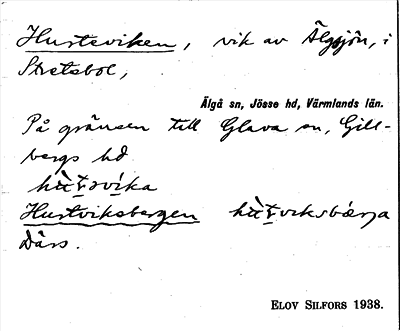 Husteviken, vik av Älgsjön, i
Stretebol,
Älgå sn, Jösse hd, Värmlands län.
På gränsen till Glava sn, Gill-
bergs hd
Hustviksbergen
Därs.
ELOV SILFORS 1938.